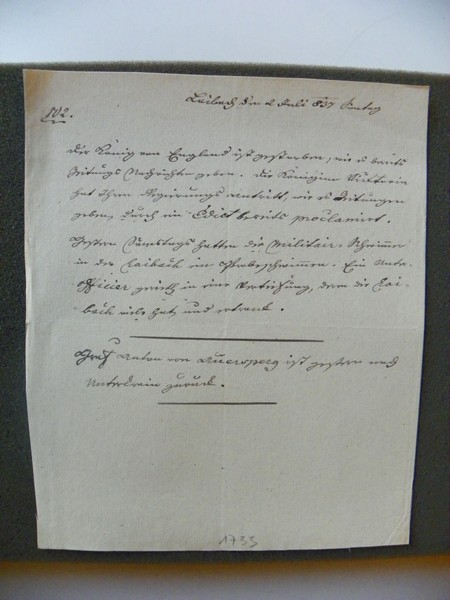 Laibach den 2 Juli 837 Sontag
102.
Der König von England ist gestorben, wie es bereits
Zeitungs Nachrichten geben. Die Königinn Viktoria
hat Ihren Regierungs antritt, wie es Zeitungen
geben, durch ein Edict bereits proclamirt.
Gestern Samstags hatten die Militair-Schwimmer
in der Laibach ein Probeschwimmen. Ein Unter-
Officier gerieth in eine Vertiefung, denn die Lai-
bach viele hat, und ertrank.
Graf Anton von Auersperg ist gestern nach
Unterkrain zurück.
1733